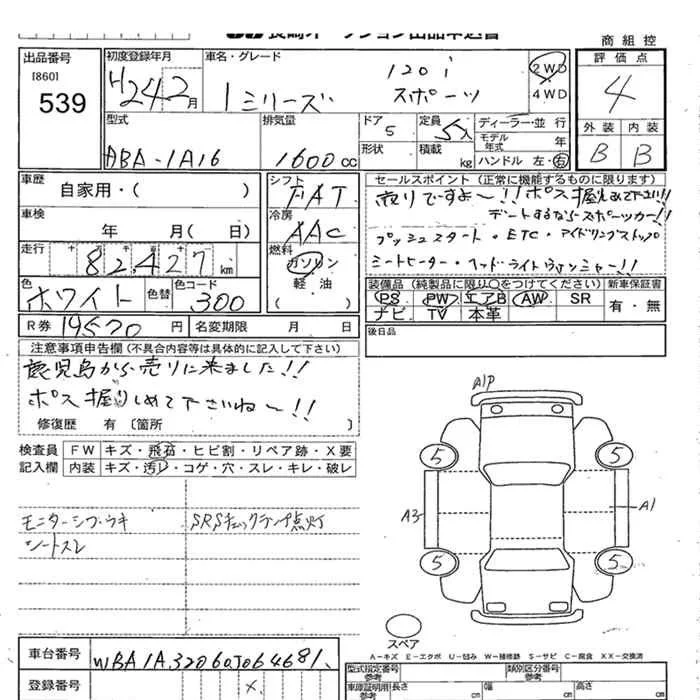 商組控
出品番号
[860]
539
初度登録年月
H24 2月
車名・グレード
1シリーズ
120i
スポーツ
2WD
4WD
評価点
4
外装 内装
B B
型式
ABA-1A16
排気量
1600cc
ドア 5
定員 5人
形状
積載 kg
ディーラー・並行
モデル年式 年
ハンドル 左・右
車歴
自家用・( )
シフト
FAT
車検
年 月(日)
冷房
AAC
走行
82,427km
燃料
ガソリン
軽油
色
ホワイト
色替
色コード
300
R券 19520円
名変期限 月 日
セールスポイント(正常に機能するものに限ります)
売りですよ〜!!ポス握りしめて下さい!!
デートするならスポーツカー!!
プッシュスタート・ETC・アイドリングストップ
シートヒーター・ヘッドライトウォッシャー!!
装備品(純製品に限り○をつけてください)
PS PW エアB AW SR
ナビ TV 本革
新車保証書
有・無
後日品
注意事項申告欄(不具合内容等は具体的に記入して下さい)
鹿児島から売りに来ました!!
ポス握りしめて下さいね〜!!
修復歴 有〔箇所 〕
検査員
記入欄
FW キズ・飛石・ヒビ割・リペア跡・X要
内装 キズ・汚レ・コゲ・穴・スレ・キレ・破レ
モニターシブ・ウキ
シートスレ
SRSチェックランプ点灯
A1P
5 5
A3 A1
5 5
スペア
A-キズ E-エクボ U-凹み W-補修跡 S-サビ C-腐食 XX-交換済
車台番号
WBA1A32060J064681
登録番号
×
型式指定番号
参考
類別区分番号
参考
車庫証明用
参考
長さ
幅
高さ